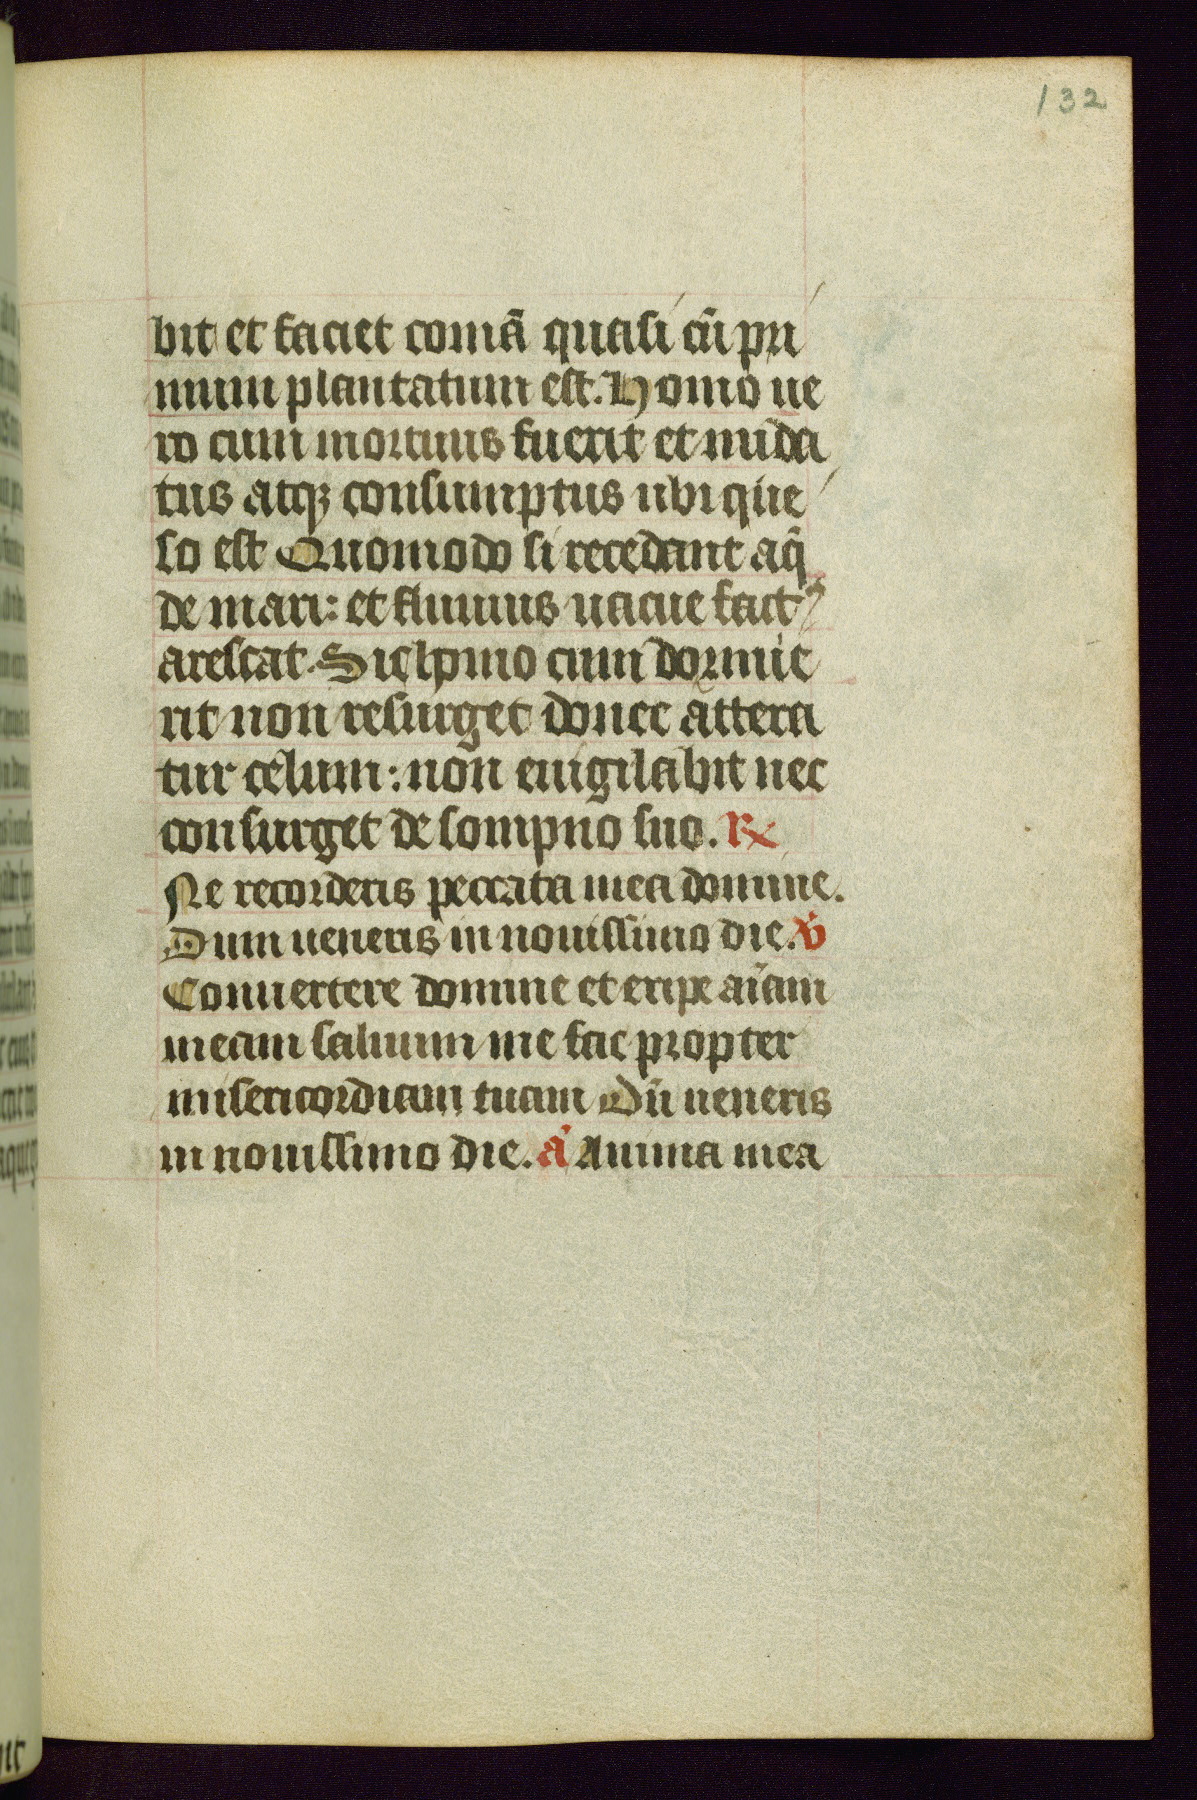 132
bit et faciet comā quasi cū pri
mum plantatum est. Homo ue
ro cum mortuus fuerit et nuda
tus atqꝫ consumptus ubi que
so est Quomodo si recedant aq̄
de mari: et fluuius uacue fact꜄
arescat. Sic homo cum dormie
rit non resurget donec attera
tur celum: non euigilabit nec
consurget de sompno suo. ℟
Ne recorderis peccata mea domine.
Dum ueneris in nouissimo die. ℣
Conuertere domine et eripe aīam
meam saluum me fac propter
misericordiam tuam Dū ueneris
in nouissimo die. ā Anima mea